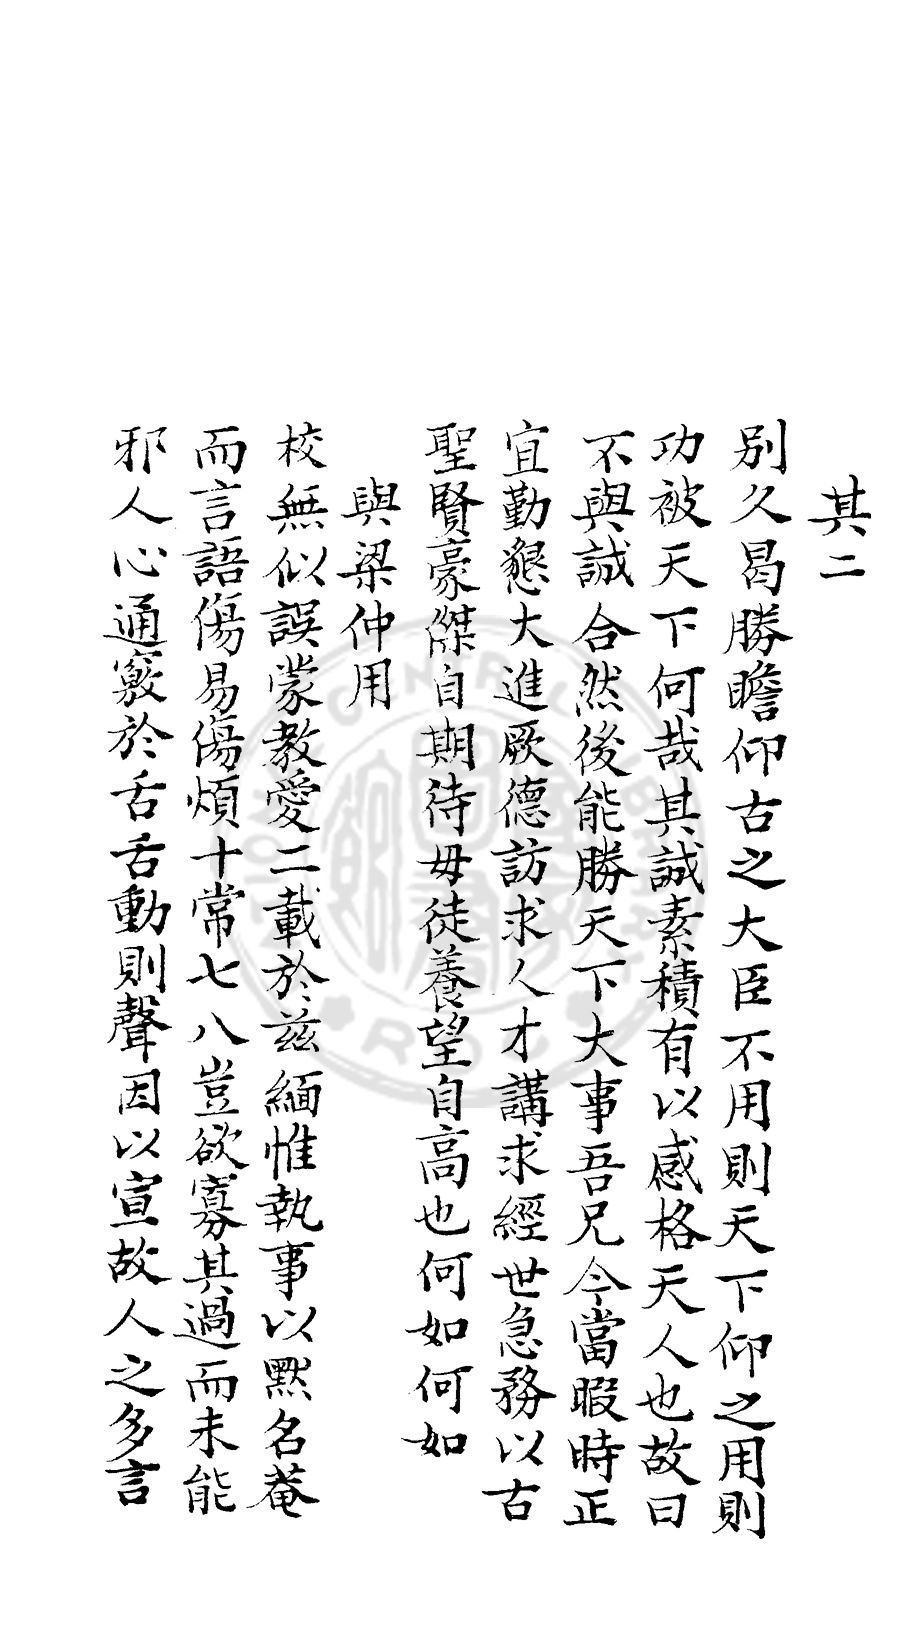 其二
別久曷勝瞻仰古之大臣不用則天下仰之用則
功被天下何哉其誠素積有以感格天人也故曰
不與誠合然後能勝天下大事吾兄今當暇時正
宜勤懇大進厥德訪求人才講求經世急務以古
聖賢豪傑自期待毋徒養望自高也何如何如
與梁仲用
校無似誤蒙教愛二載於茲緬惟執事以默名菴
而言語傷易傷煩十常七八豈欲寡其過而未能
邪人心通竅於舌舌動則聲因以宣故人之多言